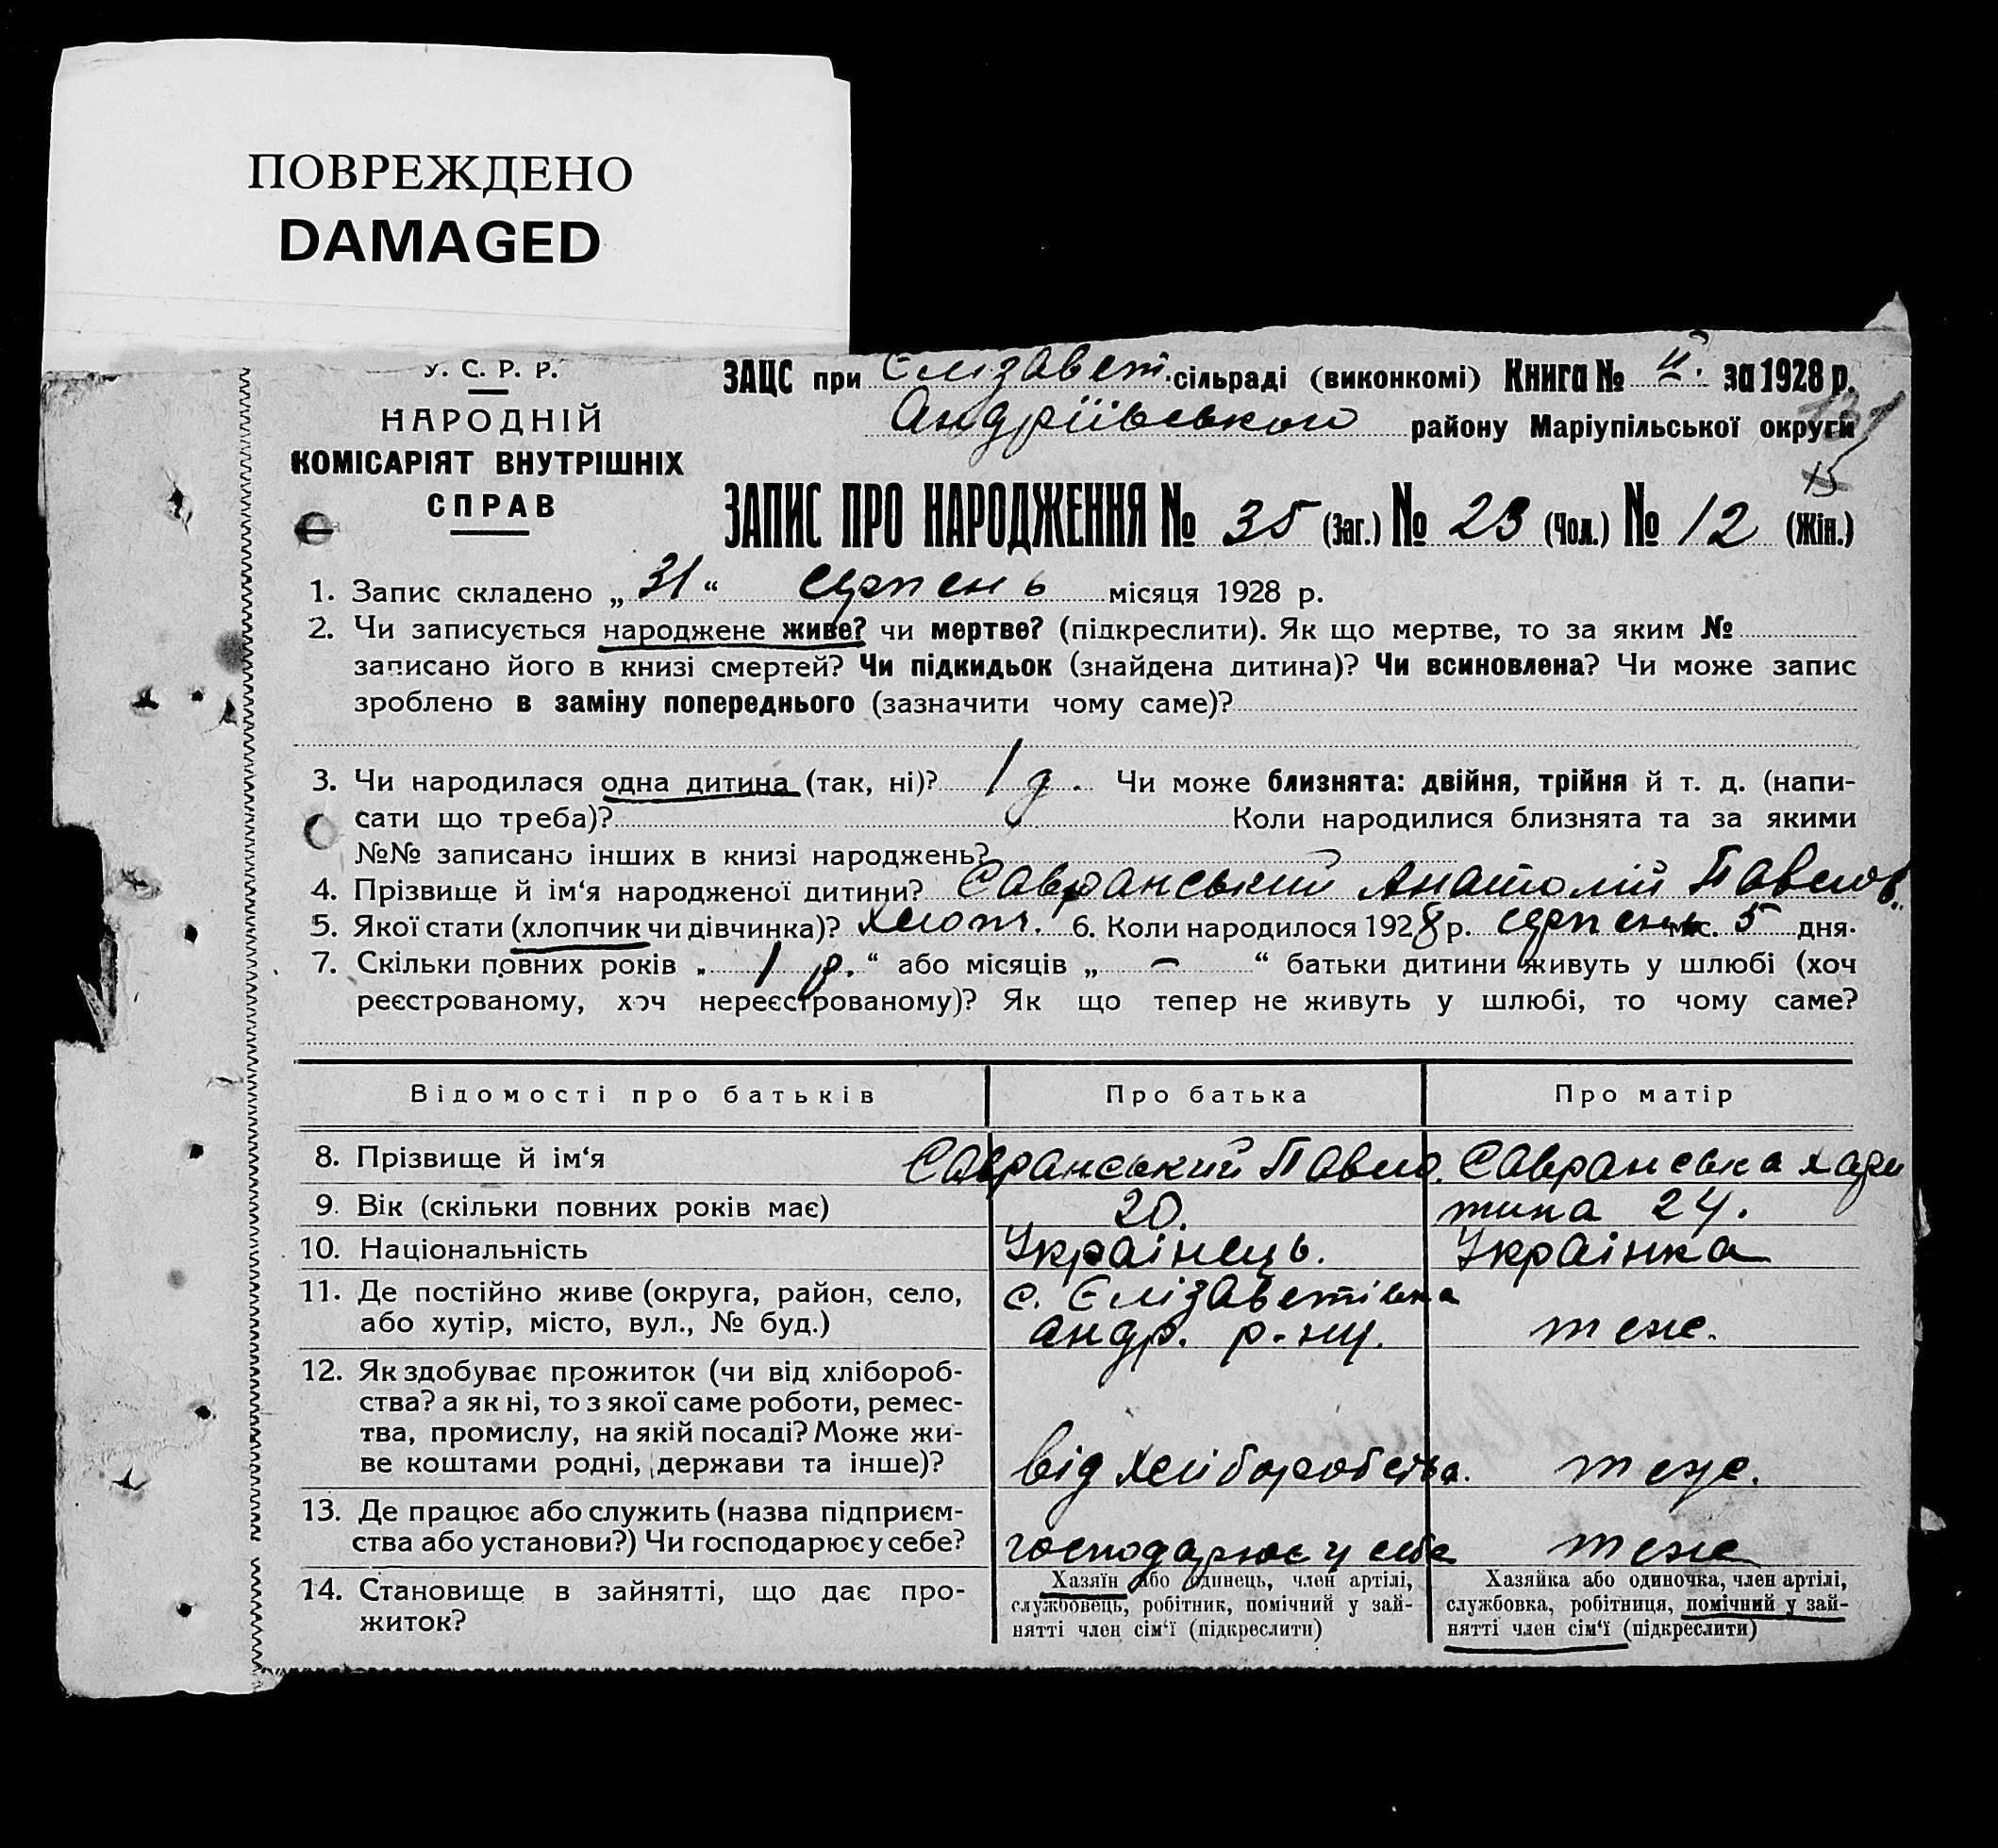 ПОВРЕЖДЕНО
DAMAGED
У. С. Р. Р.
НАРОДНІЙ
КОМІСАРІЯТ ВНУТРІШНІХ
СПРАВ
ЗАЦС при Єлізавет. сільраді (виконкомі) Книга № за 1928 р.
Андріївського району Маріупільської округи
15
ЗАПИС ПРО НАРОДЖЕННЯ № 35 (Заг.) № 23 (Чол.) № 12 (Жін.)
1. Запис складено „ 31 “ серпень місяця 1928 р.
2. Чи записується народжене живе? чи мертве? (підкреслити). Як що мертве, то за яким №
записано його в книзі смертей? Чи підкидьок (знайдена дитина)? Чи всиновлена? Чи може запис
зроблено в заміну попереднього (зазначити чому саме)?
3. Чи народилася одна дитина (так, ні)? 1 д. Чи може близнята: двійня, трійня й т. д. (напи-
сати що треба)? Коли народилися близнята та за якими
№№ записано інших в книзі народжень?
4. Прізвище й ім‘я народженої дитини? Савранський Анатолій Павлов.
5. Якої стати (хлопчик чи дівчинка)? хлопч. 6. Коли народилося 1928 р. серпень м-с. 5 дня.
7. Скільки повних років „ 1 р. “ або місяців „ – “ батьки дитини живуть у шлюбі (хоч
реєстрованому, хоч нереєстрованому)? Як що тепер не живуть у шлюбі, то чому саме?
Відомості про батьків Про батька Про матір
8. Прізвище й ім‘я Савранський Павло. Савранська Хари
9. Вік (скільки повних років має) 20. тина 24.
10. Національність Українець. Українка
11. Де постійно живе (округа, район, село, с. Єлізаветівка
або хутір, місто, вул., № буд.) Андр. р-ну. теж.
12. Як здобуває прожиток (чи від хлібороб-
ства? а як ні, то з якої саме роботи, ремес-
тва, промислу, на якій посаді? Може жи-
ве коштами родні, держави та інше)? від хліборобства. теж.
13. Де працює або служить (назва підприєм-
ства або установи?) Чи господарює у себе? господарює у себе теж
14. Становище в зайнятті, що дає про-
житок?
Хазяїн або одинець, член артілі,
службовець, робітник, помічний у зай-
нятті член сім‘ї (підкреслити)
Хазяйка або одиночка, член артілі,
службовка, робітниця, помічний у зай-
нятті член сім‘ї (підкреслити)